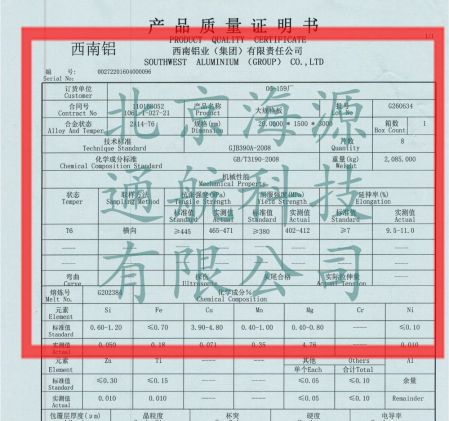 产品质量证明书
PRODUCT QUALITY CERTIFICATE
1/1
西南铝
西南铝业（集团）有限责任公司
SOUTHWEST ALUMINIUM (GROUP) CO.,LTD
编 号: 00272201604000096
Serial No:
订货单位
Customer
合同号 产品名称 批号 G260634
Contract No Product Lot No
合金状态 规格(mm) 箱数 1
Alloy And Temper Dimension Box Count
技术标准 GJB390A-2008 片数 8
Technique Standard Quantity
化学成分标准 GB/T3190-2008 重量(kg) 2,085.000
Chemical Composition Standard Weight
机械性能
Mechanical Property
状态 取样方法 抗张强度(MPa) 屈服强度(MPa) 延伸率(%)
Temper Sampling Method Tensile Strength Yield Strength Elongation
标准值 实测值 标准值 实测值 标准值 实测值
Standard Actual Standard Actual Standard Actual
T6 横向 ≥445 465-471 ≥380 402-412 ≥7 9.5-11.0
弯曲
Curve Ultrasonic Actual Tension
熔炼号 化学成分%
Melt No. Chemical Composition
元素 Si Fe Cu Mn Mg Cr Ni
Element
标准值 0.60-1.20 ≤0.70 3.90-4.80 0.40-1.00 0.40-0.80 ---- ≤0.10
Standard
实测值 0.18 0.35 ---- 0.010
Actual
元素 Zn Ti ---- ---- 其他 Others Al
Element 单个Each 合计Total
标准值 ≤0.30 ≤0.15 ---- ---- ≤0.05 ≤0.10 余量
Standard
实测值 0.010 0.010 ---- ---- ≤0.05 ≤0.10 Remainder
Actual
包覆层厚度(μm) 晶粒度 杯突 硬度 电导率
北京海源
通航科技
有限公司